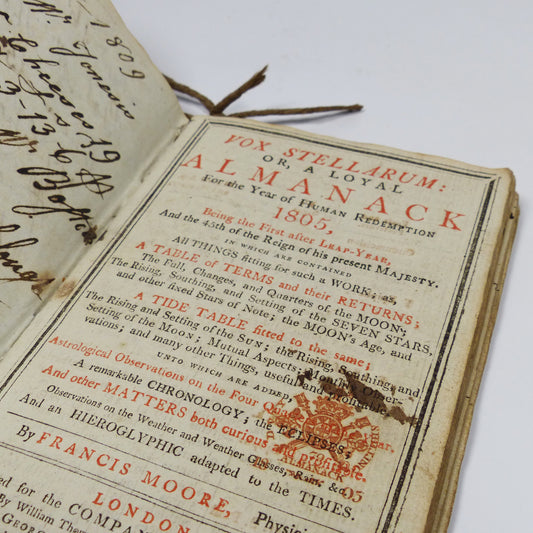 1809
Mr Jones's
Cheeses 19
3-13-6
Mr
VOX STELLARUM:
OR, A LOYAL
ALMANACK
For the Year of HUMAN REDEMPTION
1805,
Being the First after LEAP-YEAR,
And the 45th of the Reign of his present MAJESTY.
IN WHICH ARE CONTAINED
All THINGS fitting for such a WORK; as,
A TABLE of TERMS and their RETURNS;
The Full, Changes, and Quarters of the MOON;
The Rising, Southing, and Setting of the SEVEN STARS,
and other fixed Stars of Note; the MOON's Age, and
A TIDE TABLE fitted to the same;
The Rising and Setting of the SUN; the Rising, Southing, and
Setting of the MOON; Mutual Aspects; Monthly Obser-
vations; and many other Things, useful and profitable.
UNTO WHICH ARE ADDED,
Astrological Observations on the Four Quarters year,
A remarkable CHRONOLOGY; the ECLIPSES;
And other MATTERS both curious and profitable.
Observations on the Weather and Weather Glasses, Rain, &c.
And an HIEROGLYPHIC adapted to the TIMES.
ALMANACK
05
SHILLING
By FRANCIS MOORE, Physi
LONDON
ed for the COMPAN
By William Ther
GEORG